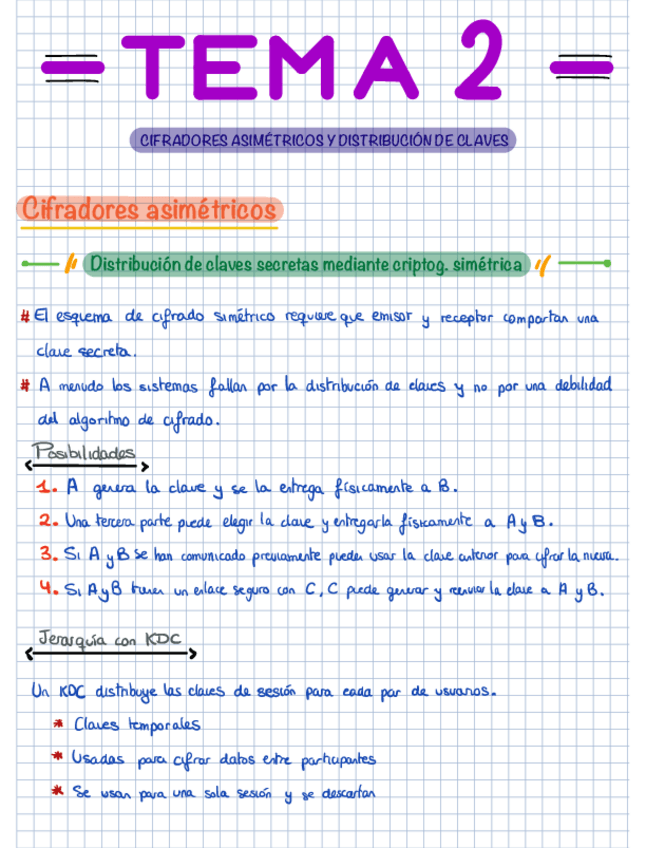 TEMA 2
CIFRADORES ASIMÉTRICOS Y DISTRIBUCIÓN DE CLAVES
Cifradores asimétricos
Distribución de claves secretas mediante criptog. simétrica
# El esquema de cifrado simétrico requiere que emisor y receptor compartan una
clave secreta.
# A menudo los sistemas fallan por la distribución de claves y no por una debilidad
del algoritmo de cifrado.
Posibilidades
1. A genera la clave y se la entrega físicamente a B.
2. Una tercera parte puede elegir la clave y entregarla físicamente a A y B.
3. Si A y B se han comunicado previamente pueden usar la clave anterior para cifrar la nueva.
4. Si A y B tienen un enlace seguro con C, C puede generar y reenviar la clave a A y B.
Jerarquía con KDC
Un KDC distribuye las claves de sesión para cada par de usuarios.
* Claves temporales
* Usadas para cifrar datos entre participantes
* Se usan para una sola sesión y se descartan